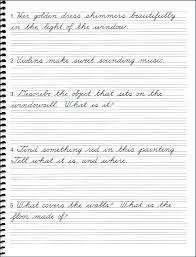 1. Her golden dress shimmers beautifully
in the light of the window.
2. Violins make sweet sounding music.
3. Describe the object that sits on the
windowsill. What is it?
4. Find something red in this painting.
Tell what it is, and where.
5. What covers the walls? What is the
floor made of?